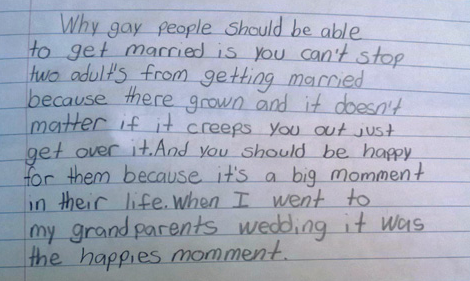 Why gay people should be able
to get married is you can't stop
two adult's from getting married
because there grown and it doesn't
matter if it creeps you out just
get over it.And you should be happy
for them because it's a big momment
in their life.When I went to
my grandparents wedding it was
the happies momment.